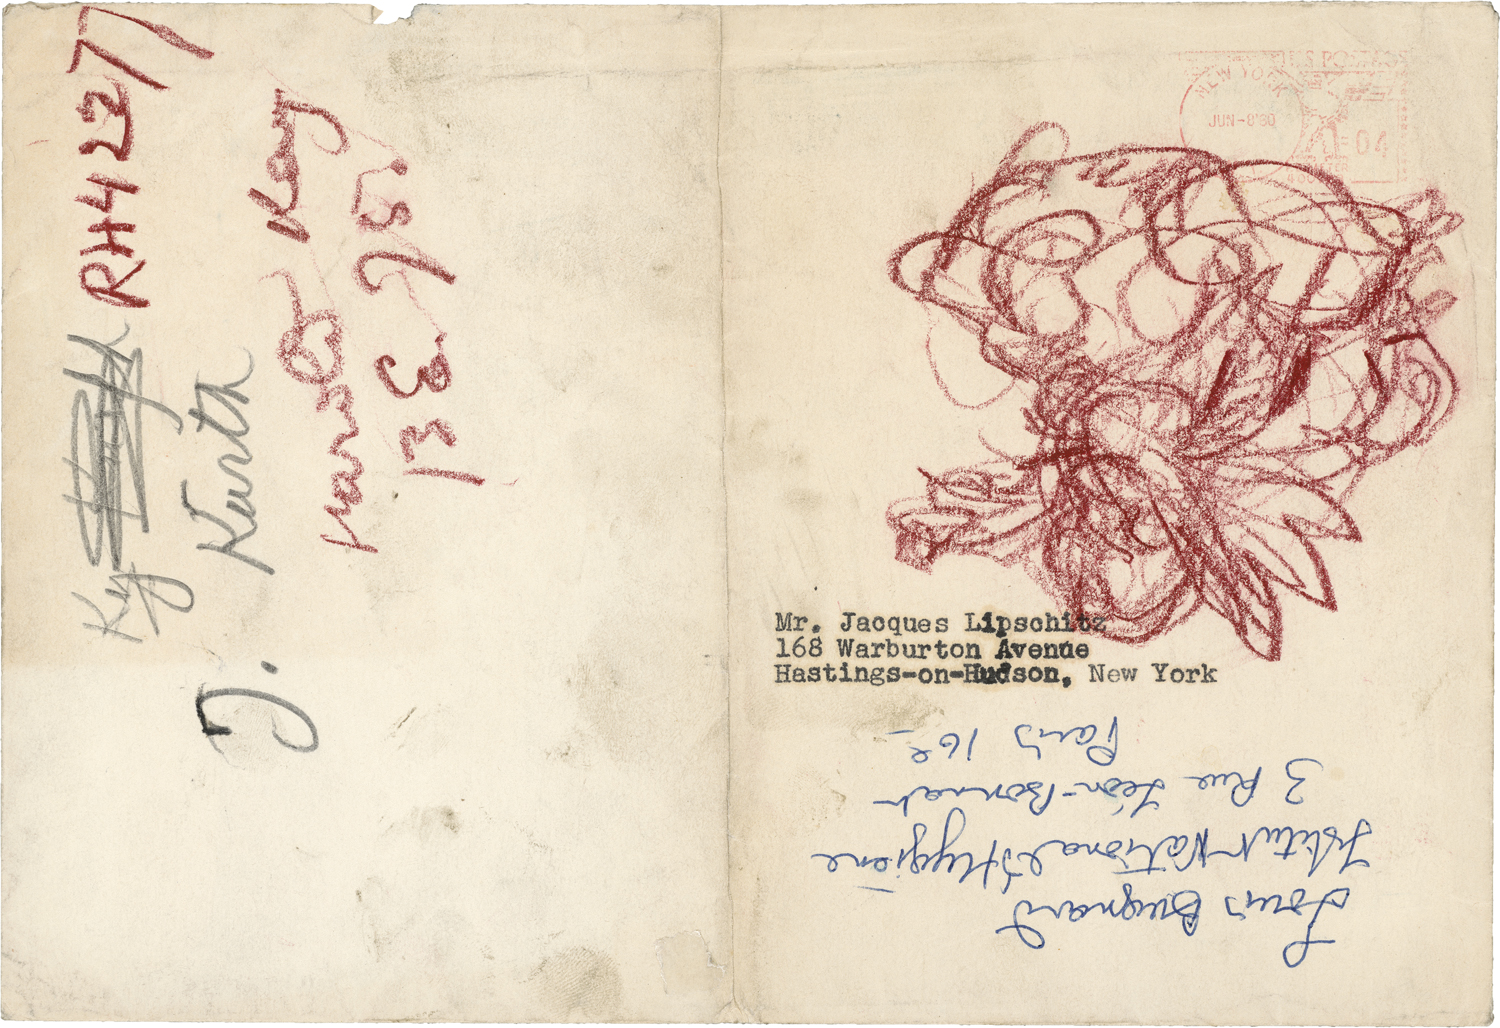 RH4 227
J. Kurth
Kay
13 E. 75.
U.S. POSTAGE
NEW YORK
JUN-8'60
04
Mr. Jacques Lipschitz
168 Warburton Avenue
Hastings-on-Hudson, New York
Louis Bugnard
Institut National d'Hygiène
3 Rue Léon-Bonnat
Paris 16e